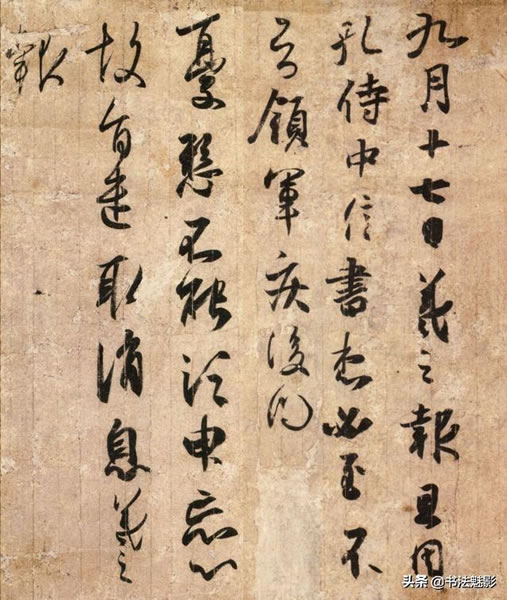 九月十七日羲之報且因
孔侍中信書想必至不
知領軍疾後問
憂懸不能須臾忘心
故旨遣取消息羲之
報
头条 @书法魅影